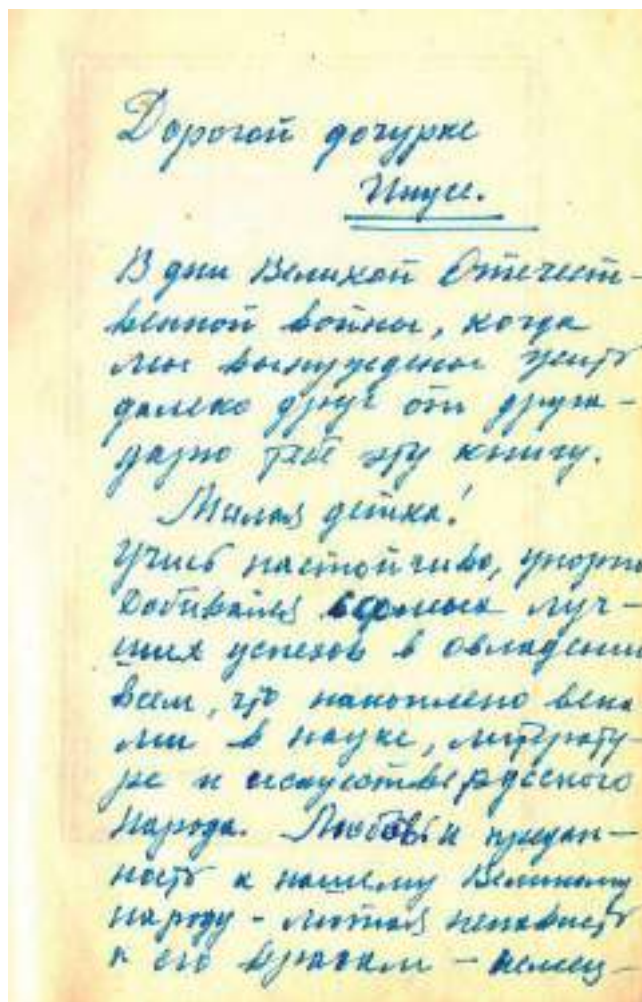 Дорогой дочурке
Инусе.
В дни Великой Отечест-
венной войны, когда
мы вынуждены жить
далеко друг от друга -
дарю тебе эту книгу.
Милая детка!
Учись настойчиво, упорно
добивайся самых луч-
ших успехов в овладении
всем, что накоплено века
ми в науке, литерату
ре и искусстве русского
народа. Любовь и предан-
ность к нашему Великому
народу - лютая ненависть
к его врагам - немец-